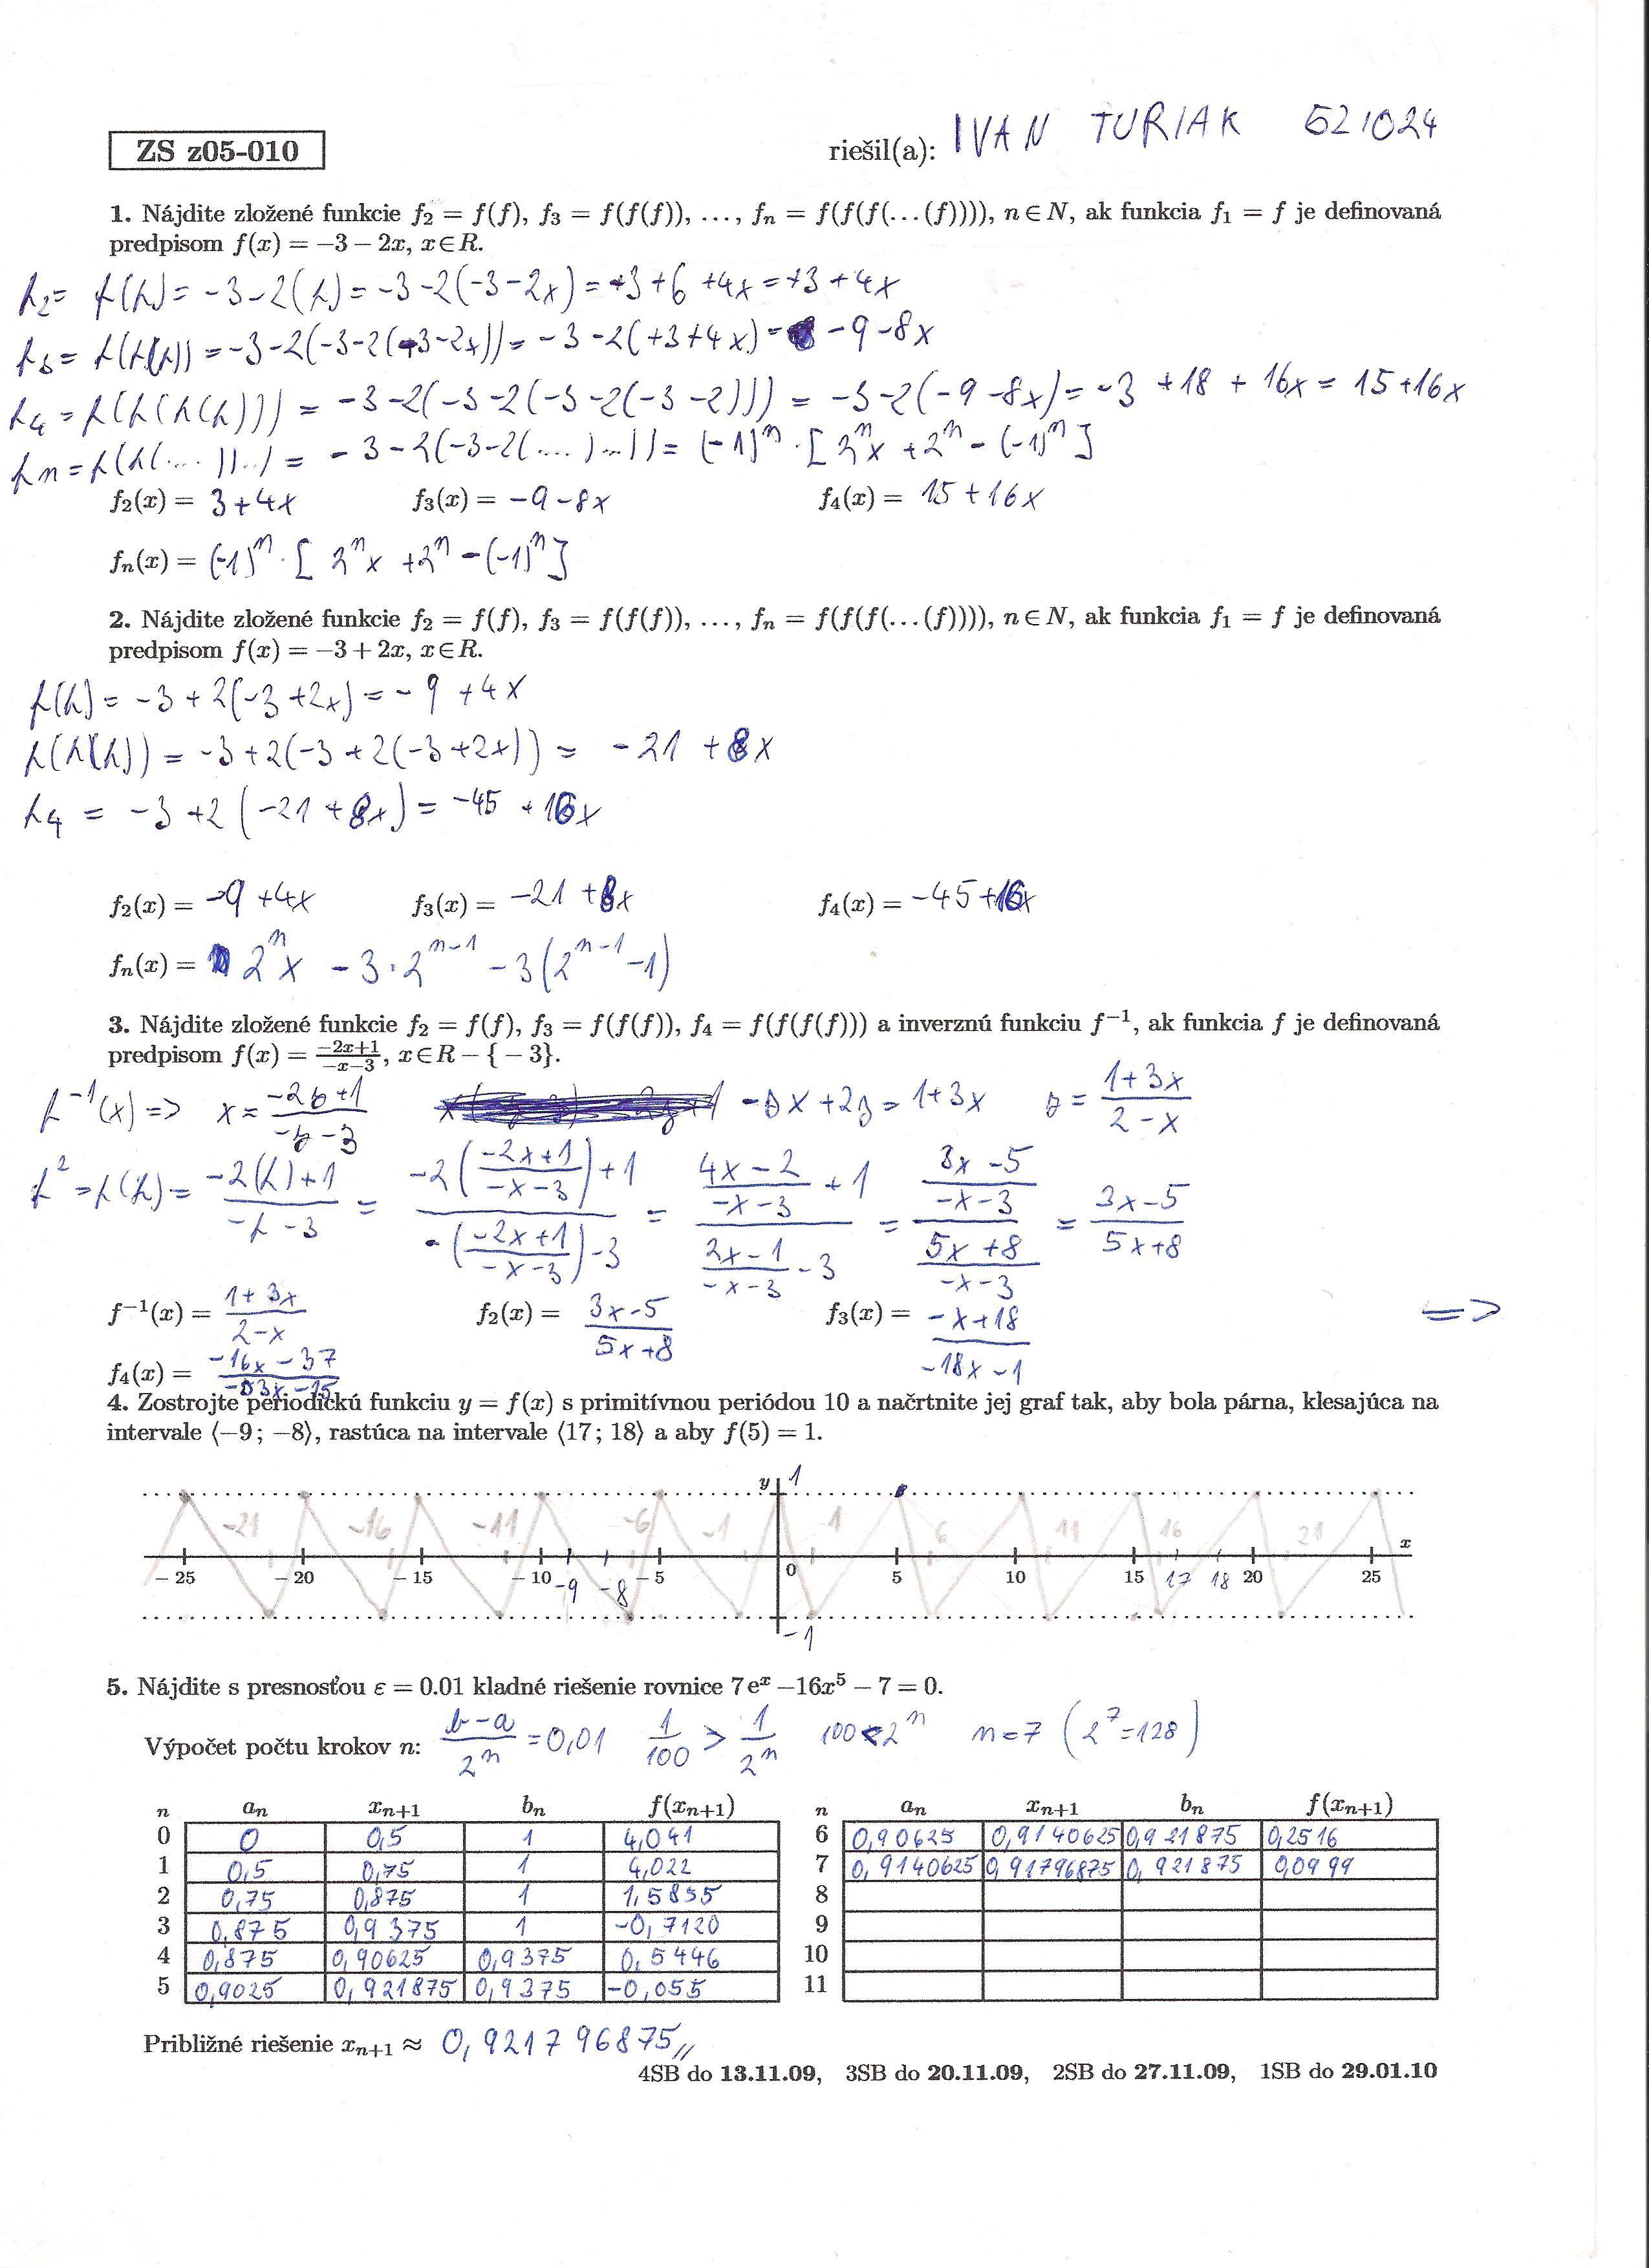 ZS z05-010
riešil(a): IVAN TURIAK 521024
1. Nájdite zložené funkcie f₂ = f(f), f₃ = f(f(f)), ..., fₙ = f(f(f(...(f)))), n∈N, ak funkcia f₁ = f je definovaná
predpisom f(x) = −3 − 2x, x∈R.
f₂ = f(f) = -3-2(f) = -3-2(-3-2x) = -3+6+4x = +3+4x
f₃ = f(f(f)) = -3-2(-3-2(-3-2x)) = -3-2(+3+4x) = -9-8x
f₄ = f(f(f(f))) = -3-2(-3-2(-3-2(-3-2))) = -3-2(-9-8x) = -3+18+16x = 15+16x
fn = f(f(....))..) = -3-2(-3-2(....)...)) = (-1)ⁿ·[2ⁿx+2ⁿ-(-1)ⁿ]
f₂(x) = 3+4x f₃(x) = -9-8x f₄(x) = 15+16x
fₙ(x) = (-1)ⁿ·[2ⁿx+2ⁿ-(-1)ⁿ]
2. Nájdite zložené funkcie f₂ = f(f), f₃ = f(f(f)), ..., fₙ = f(f(f(...(f)))), n∈N, ak funkcia f₁ = f je definovaná
predpisom f(x) = −3 + 2x, x∈R.
f(f) = -3+2(-3+2x) = -9+4x
f(f(f)) = -3+2(-3+2(-3+2x)) = -21+8x
f₄ = -3+2(-21+8x) = -45+16x
f₂(x) = -9+4x f₃(x) = -21+8x f₄(x) = -45+16x
fₙ(x) = 2ⁿx - 3·2ⁿ⁻¹ - 3(2ⁿ⁻¹-1)
3. Nájdite zložené funkcie f₂ = f(f), f₃ = f(f(f)), f₄ = f(f(f(f))) a inverznú funkciu f⁻¹, ak funkcia f je definovaná
predpisom f(x) = (−2x+1)/(−x−3), x∈R−{−3}.
f⁻¹(x) => x = (-2y+1)/(-y-3) -yx+2y = 1+3x y = (1+3x)/(2-x)
f² = f(f) = (-2(f)+1)/(-f-3) = (-2((-2x+1)/(-x-3))+1)/(-((-2x+1)/(-x-3))-3) = ((4x-2)/(-x-3)+1)/((2x-1)/(-x-3)-3) = ((3x-5)/(-x-3))/((5x+8)/(-x-3)) = (3x-5)/(5x+8)
f⁻¹(x) = (1+3x)/(2-x) f₂(x) = (3x-5)/(5x+8) f₃(x) = (-x+18)/(-18x-1) =>
f₄(x) = (-16x-37)/
4. Zostrojte periodickú funkciu y = f(x) s primitívnou periódou 10 a načrtnite jej graf tak, aby bola párna, klesajúca na
intervale ⟨−9; −8⟩, rastúca na intervale ⟨17; 18⟩ a aby f(5) = 1.
y 1
-21 -16 -11 -6 -1 1 6 11 16 21
x
−25 −20 −15 −10 -9 -8 −5 0 5 10 15 17 18 20 25
-1
5. Nájdite s presnosťou ε = 0.01 kladné riešenie rovnice 7eˣ −16x⁵ − 7 = 0.
Výpočet počtu krokov n: (b-a)/2ⁿ = 0,01 1/100 > 1/2ⁿ 100<2ⁿ n=7 (2⁷=128)
n aₙ xₙ₊₁ bₙ f(xₙ₊₁) n aₙ xₙ₊₁ bₙ f(xₙ₊₁)
0 0 0,5 1 4,041 6 0,90625 0,9140625 0,921875 0,2516
1 0,5 0,75 1 4,022 7 0,9140625 0,91796875 0,921875 0,0999
2 0,75 0,875 1 1,5855 8
3 0,875 0,9375 1 -0,7120 9
4 0,875 0,90625 0,9375 0,5446 10
5 0,9025 0,921875 0,9375 -0,055 11
Približné riešenie xₙ₊₁ ≈ 0,921796875
4SB do 13.11.09, 3SB do 20.11.09, 2SB do 27.11.09, 1SB do 29.01.10